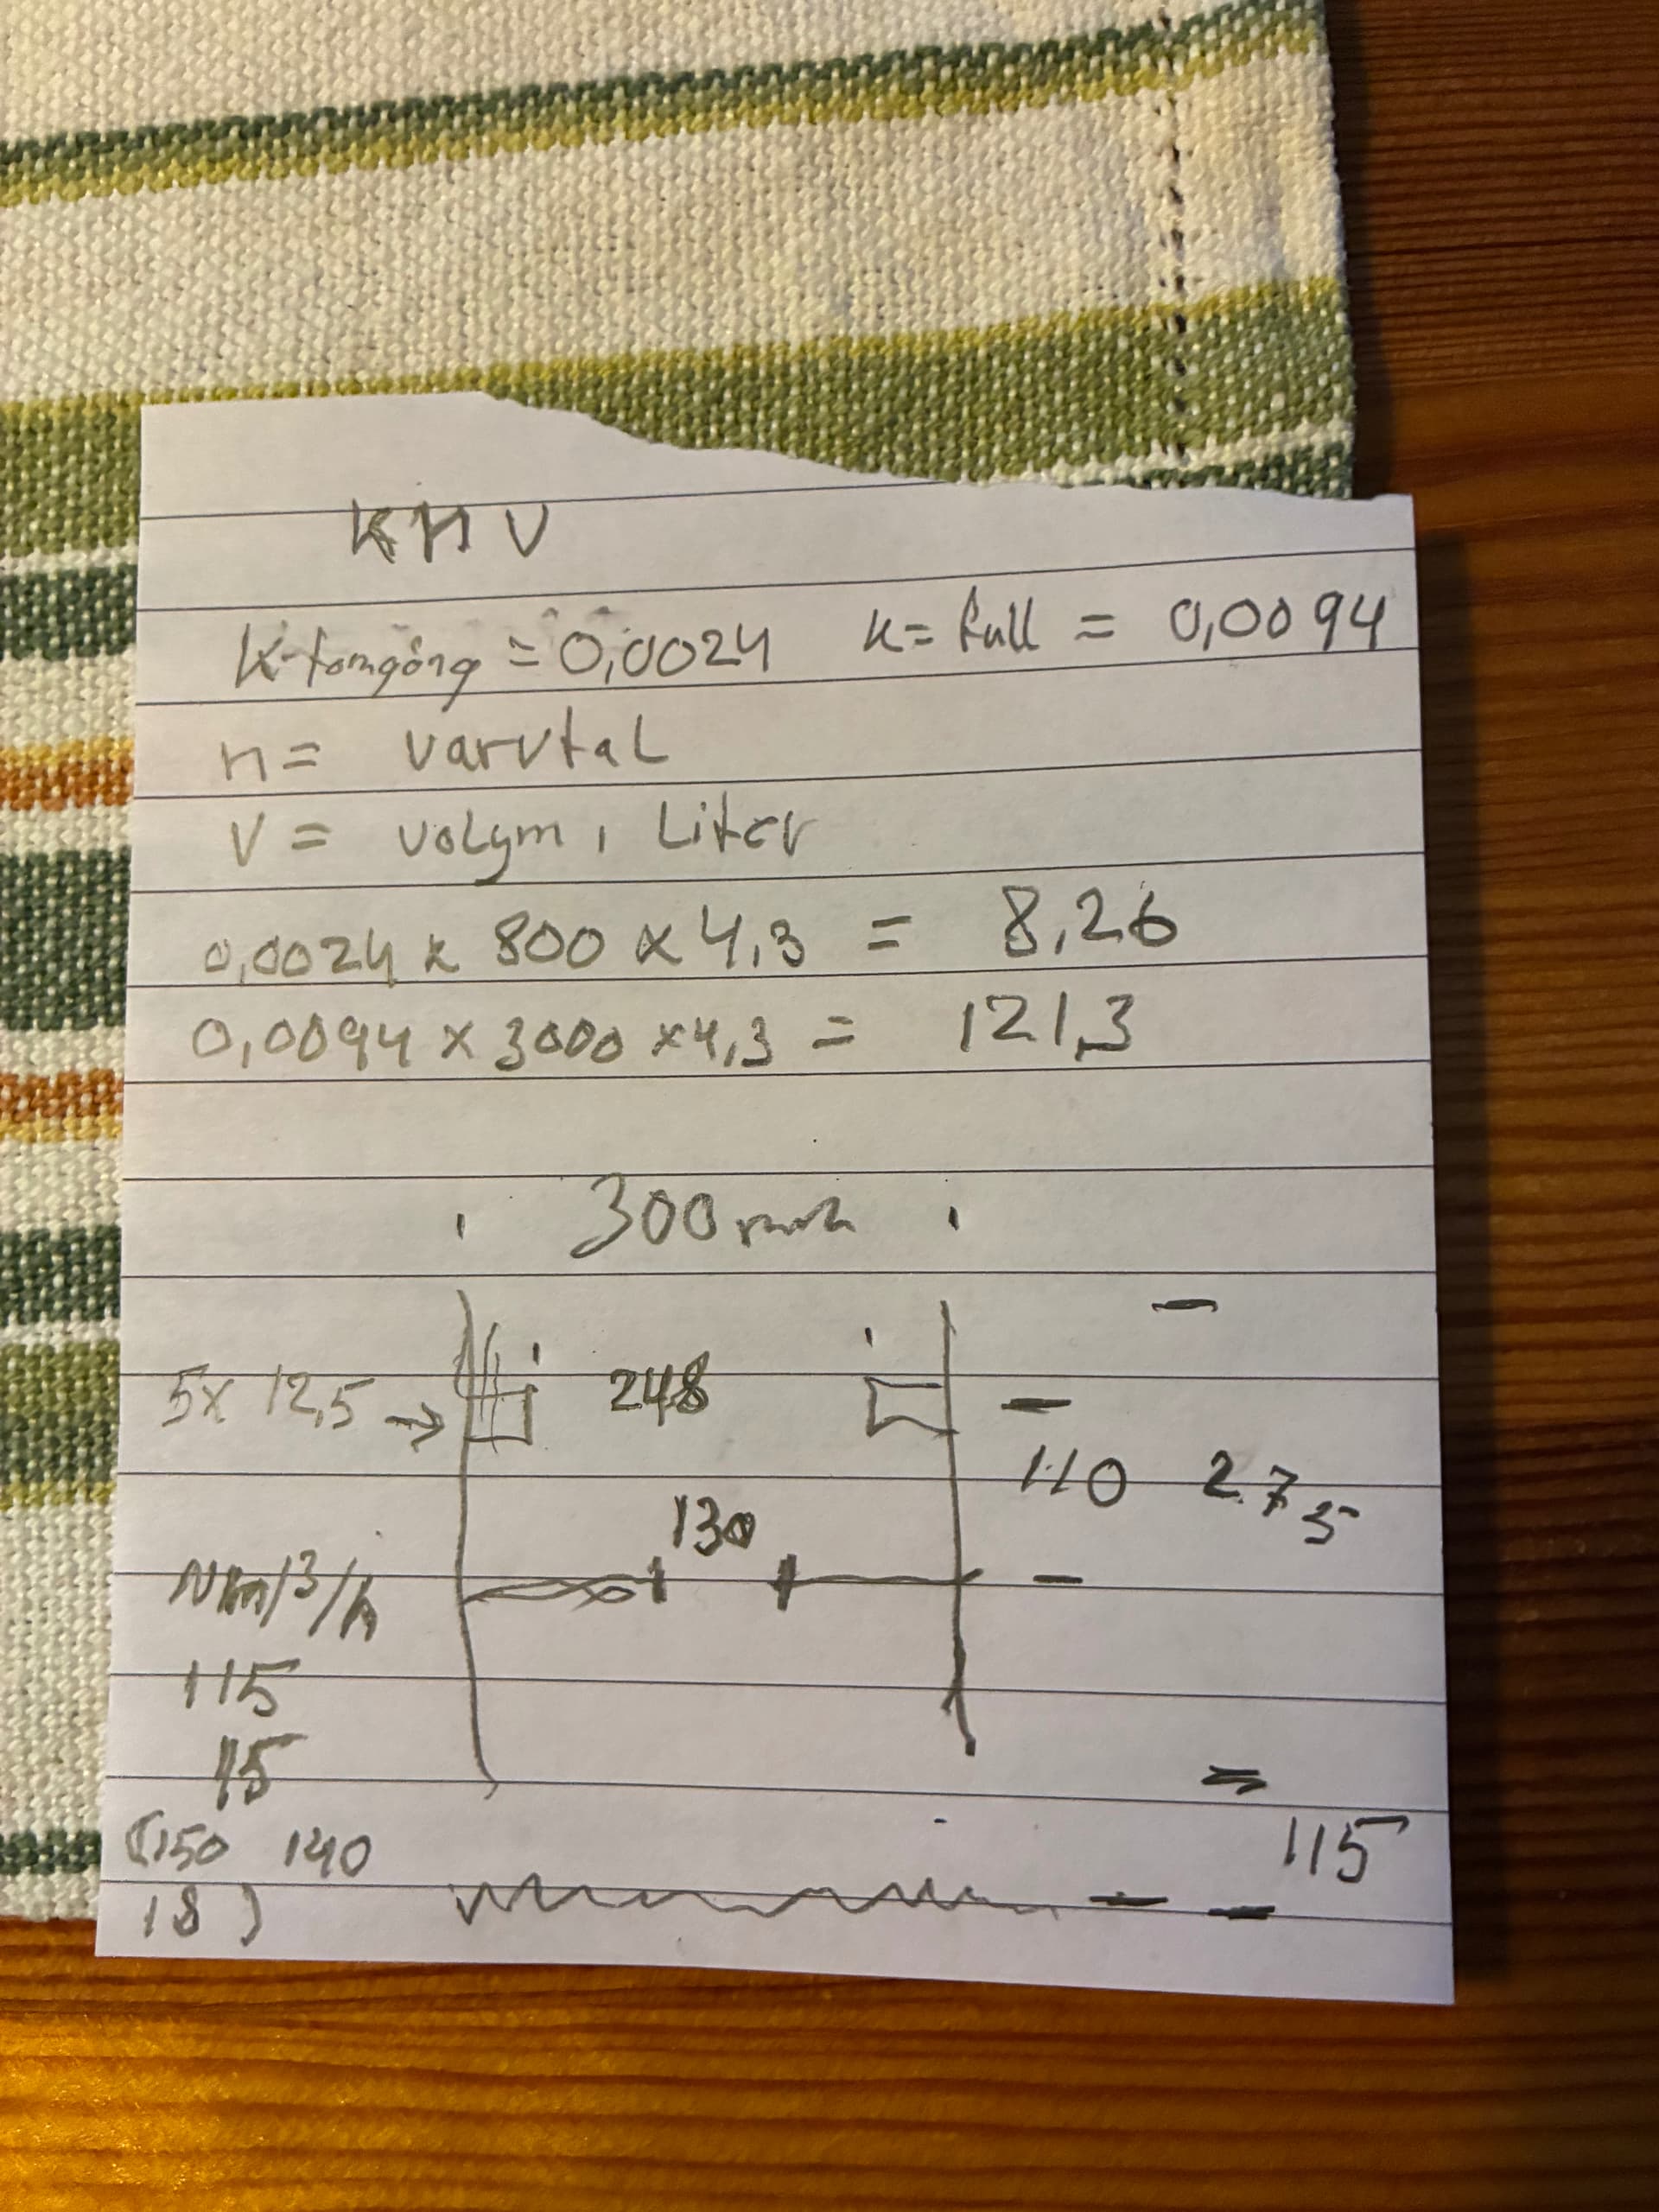 K n V
K-tomgång = 0,0024 K = full = 0,0094
n = varvtal
V = volym, Liter
0,0024 x 800 x 4,3 = 8,26
0,0094 x 3000 x 4,3 = 121,3
300 mm
5x 12,5 → 248
110 275
130
Nm/3/h
115
15
115
(150 140
18)